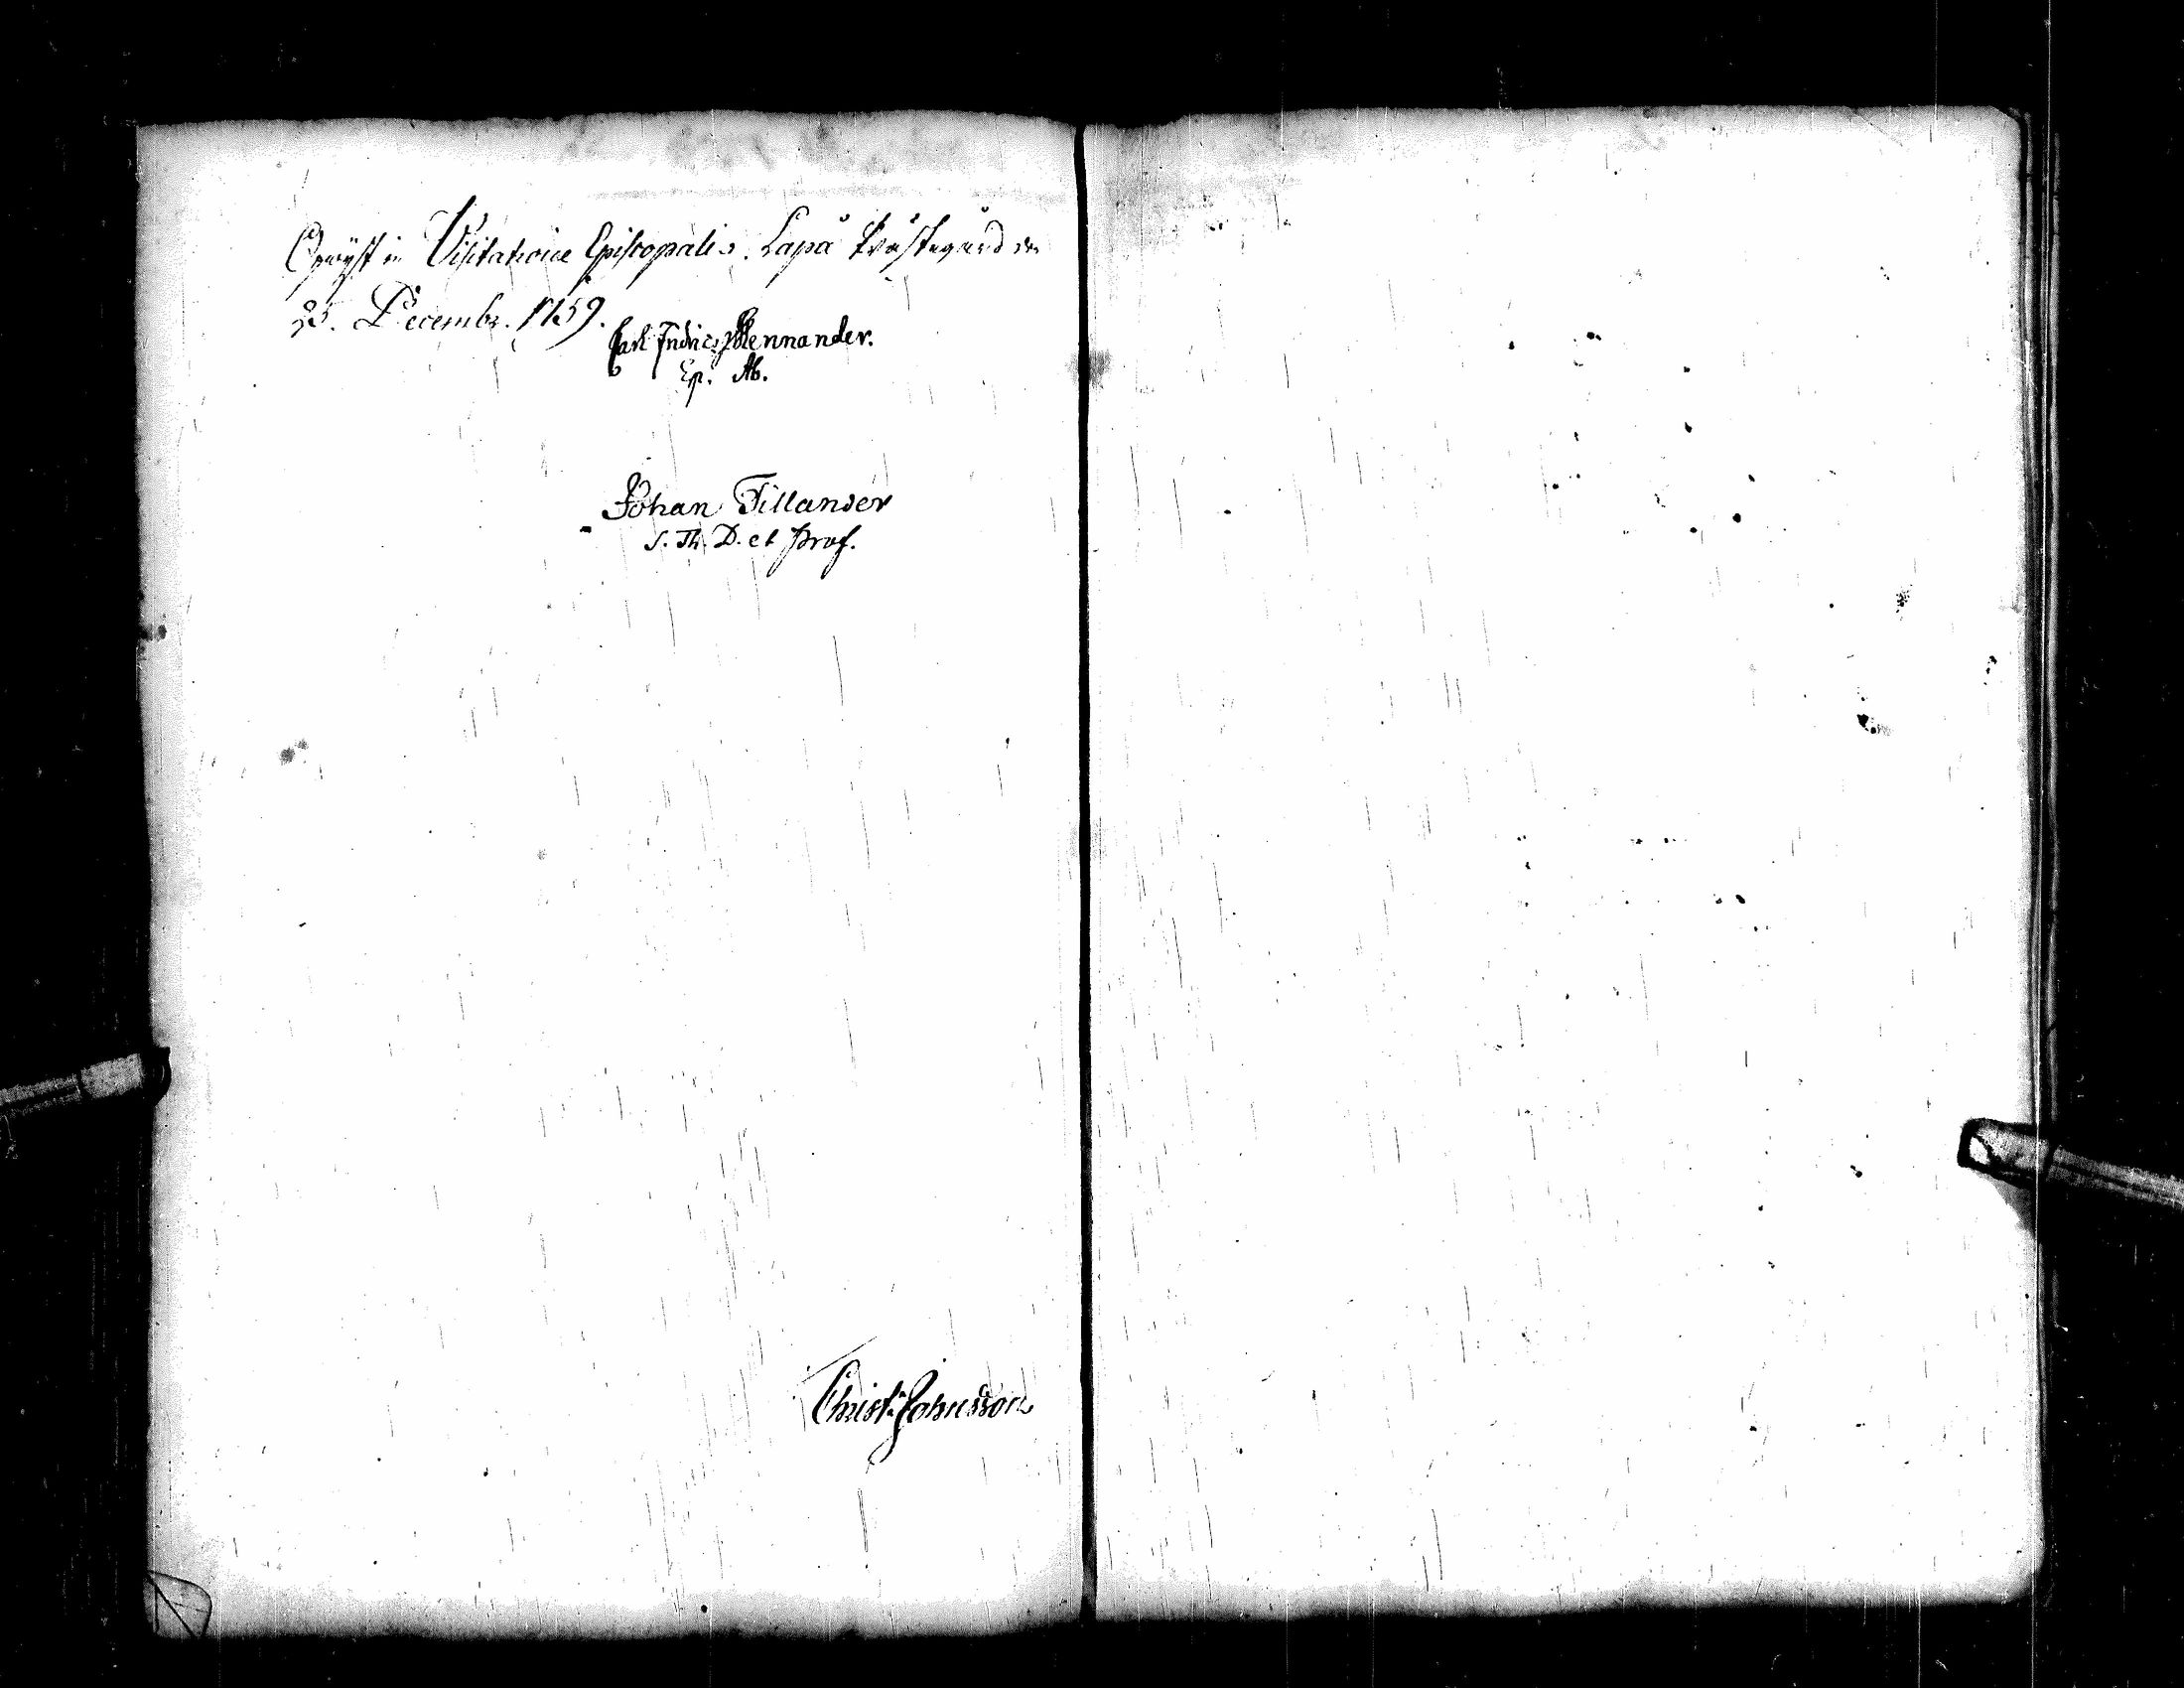 Opwijst in Visitatione Episcopali å Lapå Prästegård den
25. Decembr. 1759.
Carl Fredric Mennander.
Ep. Ab.
Johan Tillander
S. Th. D. et Prof.
Christ: Johnsson